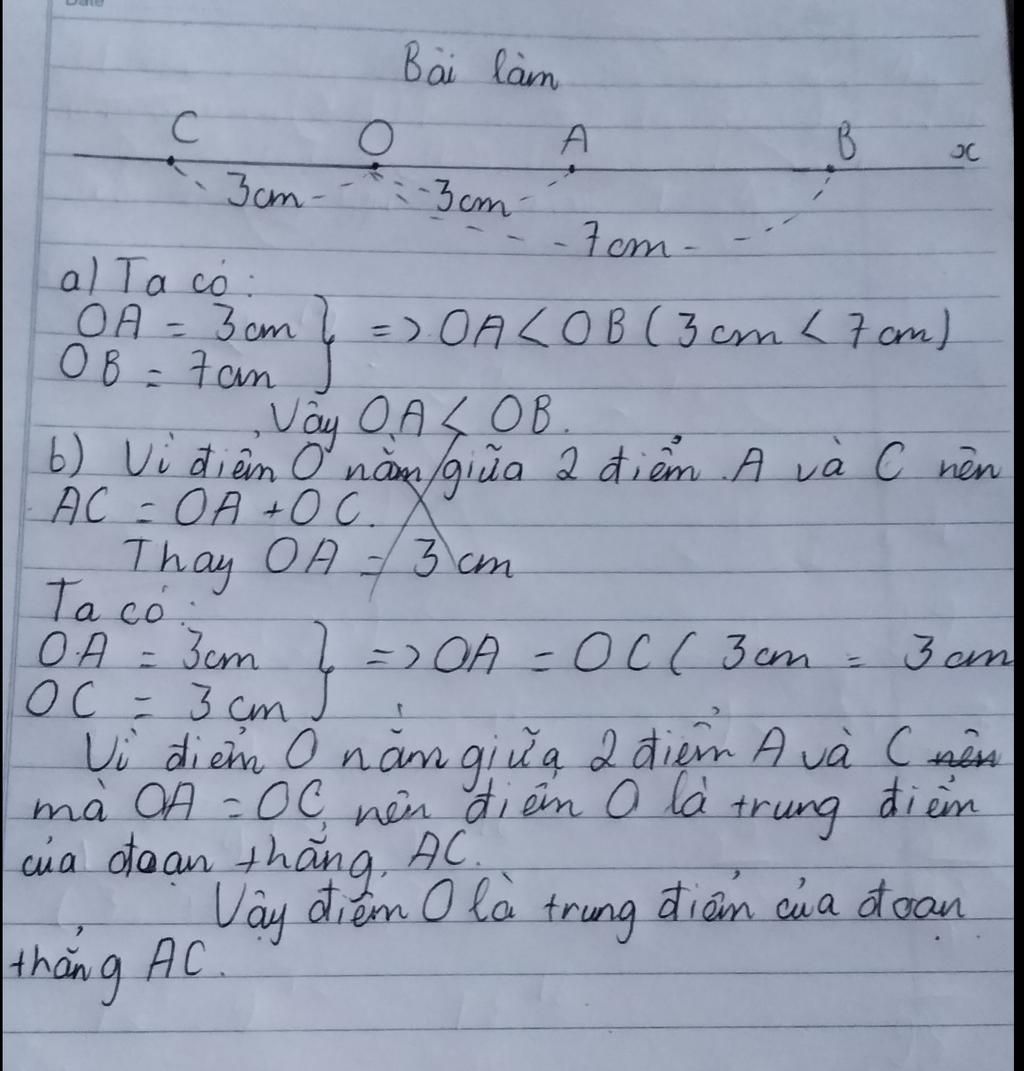 Date
Bài làm
C O A B x
3cm 3cm
7cm
a) Ta có:
OA = 3cm } => OA < OB (3cm < 7cm)
OB = 7cm
Vậy OA < OB.
b) Vì điểm O nằm giữa 2 điểm A và C nên
AC = OA + OC.
Thay OA = 3cm
Ta có:
OA = 3cm } => OA = OC ( 3cm = 3cm
OC = 3cm
Vì điểm O nằm giữa 2 điểm A và C nên
mà OA = OC nên điểm O là trung điểm
của đoạn thẳng AC.
Vậy điểm O là trung điểm của đoạn
thẳng AC.